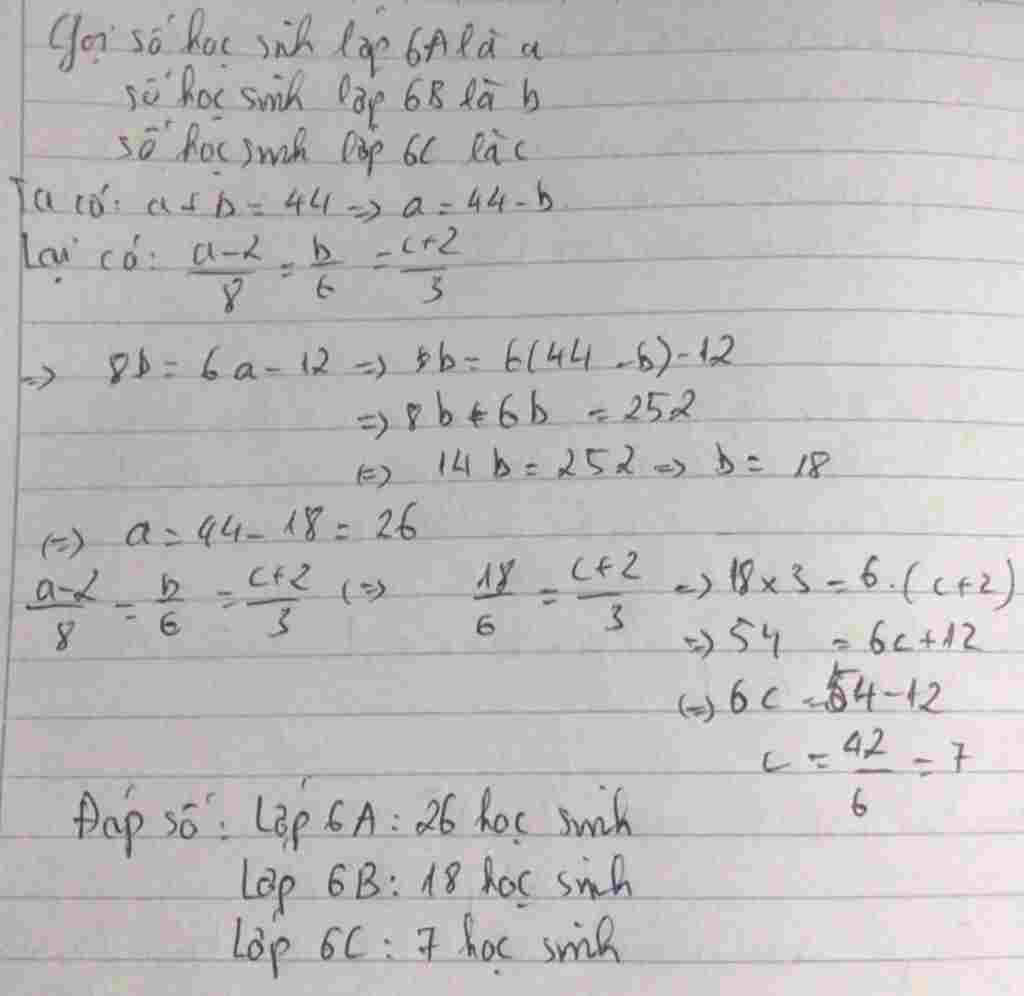 Gọi số học sinh lớp 6A là a
số học sinh lớp 6B là b
số học sinh lớp 6C là c
Ta có: a + b = 44 => a = 44 - b
Lại có: \frac{a-2}{8} = \frac{b}{6} = \frac{c+2}{3}
=> 8b = 6a - 12 => 8b = 6(44 - b) - 12
=> 8b + 6b = 252
(=) 14b = 252 => b = 18
(=) a = 44 - 18 = 26
\frac{a-2}{8} = \frac{b}{6} = \frac{c+2}{3} (=) \frac{18}{6} = \frac{c+2}{3} => 18 x 3 = 6.(c+2)
=> 54 = 6c + 12
(=) 6c = 54 - 12
c = \frac{42}{6} = 7
Đáp số: Lớp 6A: 26 học sinh
Lớp 6B: 18 học sinh
Lớp 6C: 7 học sinh